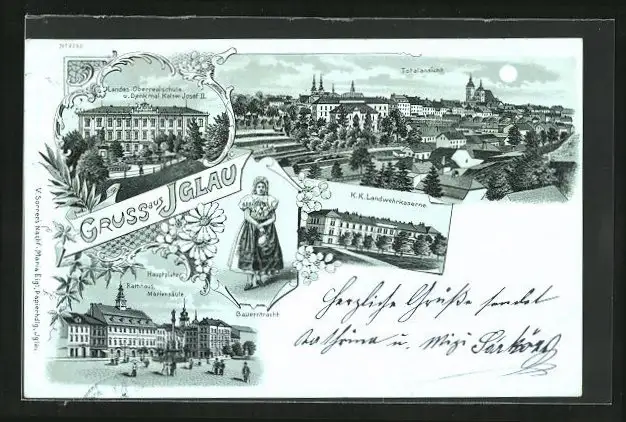 Landes-Oberrealschule
u. Denkmal Kaiser Josef II.
Totalansicht
GRUSS aus JGLAU
K.K. Landwehrkaserne
Hauptplatz
Rathaus
Mariensäule
Bauerntracht
V. Sorrers Nachf. Maria Eigl, Papierhdlg. Jglau
Herzliche Grüße sendet
Kathrina u. Mizi Sárközy